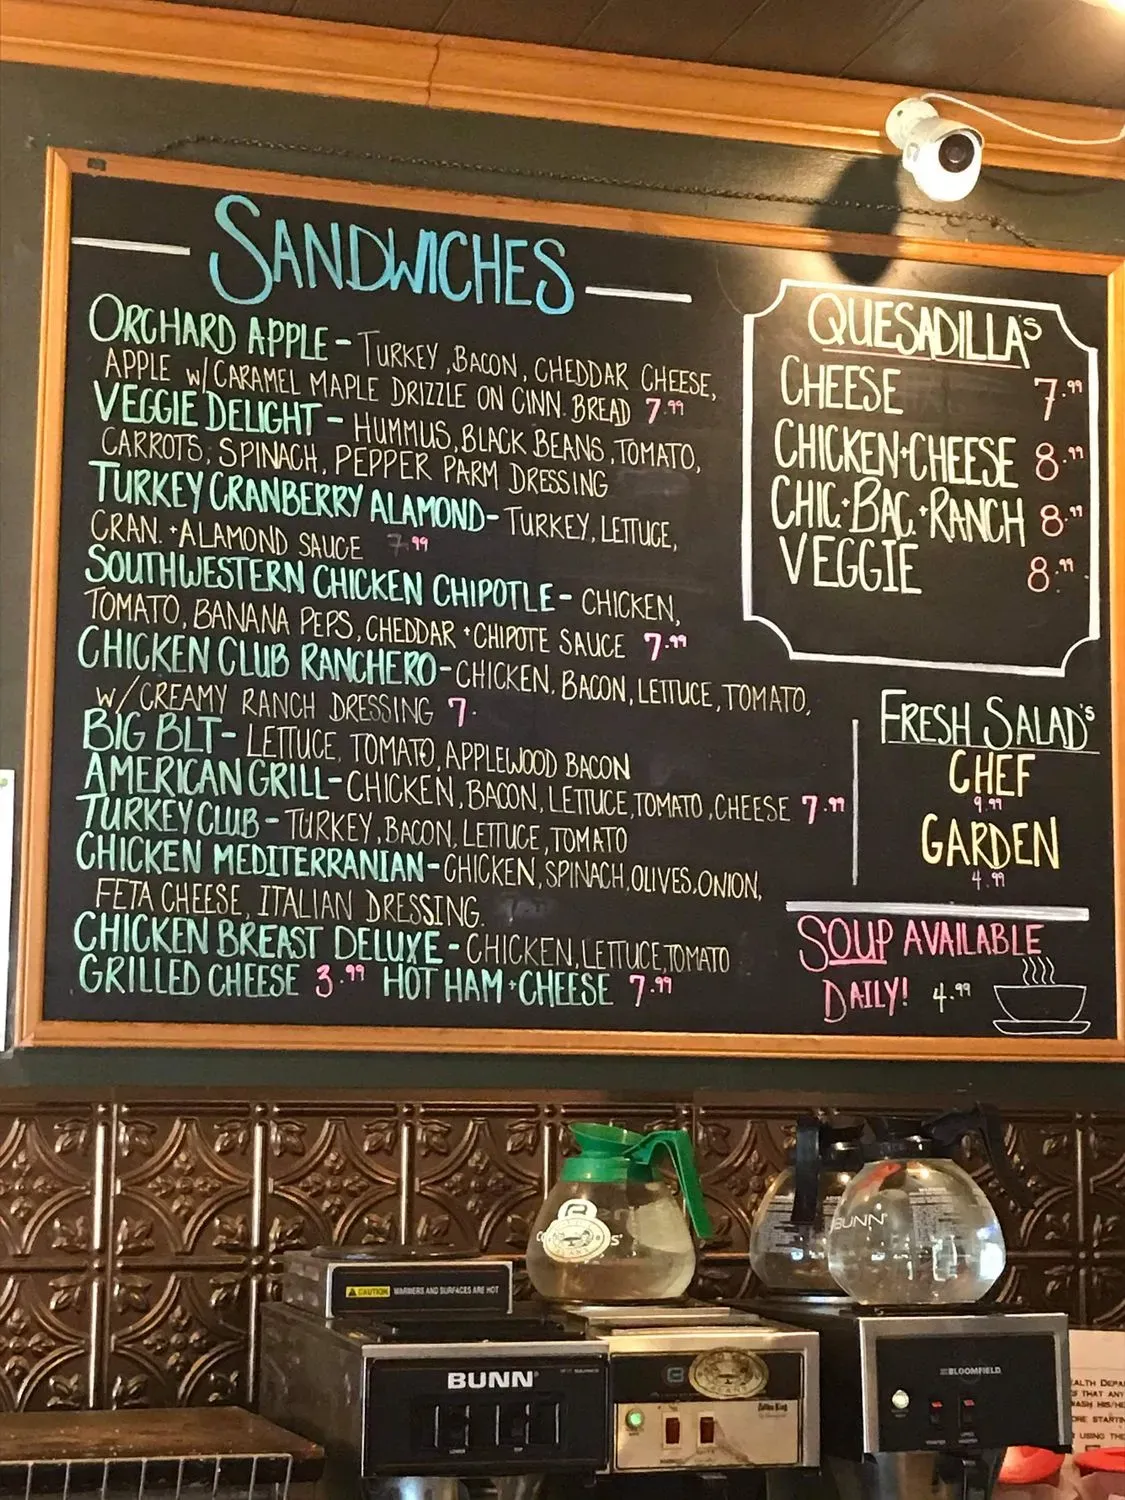 SANDWICHES
ORCHARD APPLE - TURKEY, BACON, CHEDDAR CHEESE,
APPLE w/CARAMEL MAPLE DRIZZLE ON CINN. BREAD 7.99
VEGGIE DELIGHT - HUMMUS, BLACK BEANS, TOMATO,
CARROTS, SPINACH, PEPPER PARM DRESSING
TURKEY CRANBERRY ALAMOND - TURKEY, LETTUCE,
CRAN. + ALAMOND SAUCE 7.99
SOUTHWESTERN CHICKEN CHIPOTLE - CHICKEN,
TOMATO, BANANA PEPS, CHEDDAR + CHIPOTE SAUCE 7.99
CHICKEN CLUB RANCHERO - CHICKEN, BACON, LETTUCE, TOMATO,
w/CREAMY RANCH DRESSING 7.
BIG BLT - LETTUCE, TOMATO, APPLEWOOD BACON
AMERICAN GRILL - CHICKEN, BACON, LETTUCE, TOMATO, CHEESE 7.99
TURKEY CLUB - TURKEY, BACON, LETTUCE, TOMATO
CHICKEN MEDITERRANIAN - CHICKEN, SPINACH, OLIVES, ONION,
FETA CHEESE, ITALIAN DRESSING.
CHICKEN BREAST DELUXE - CHICKEN, LETTUCE, TOMATO
GRILLED CHEESE 3.99 HOT HAM + CHEESE 7.99
QUESADILLA'S
CHEESE 7.99
CHICKEN + CHEESE 8.99
CHIC. + BAC. + RANCH 8.99
VEGGIE 8.99
FRESH SALAD'S
CHEF
9.99
GARDEN
4.99
SOUP AVAILABLE
DAILY! 4.99
CAUTION WARMERS AND SURFACES ARE HOT
BUNN
BUNN
BLOOMFIELD
EALTH DEPA
THAT ANY
WASH HIS/HE
ORE STARTIN
USING THE